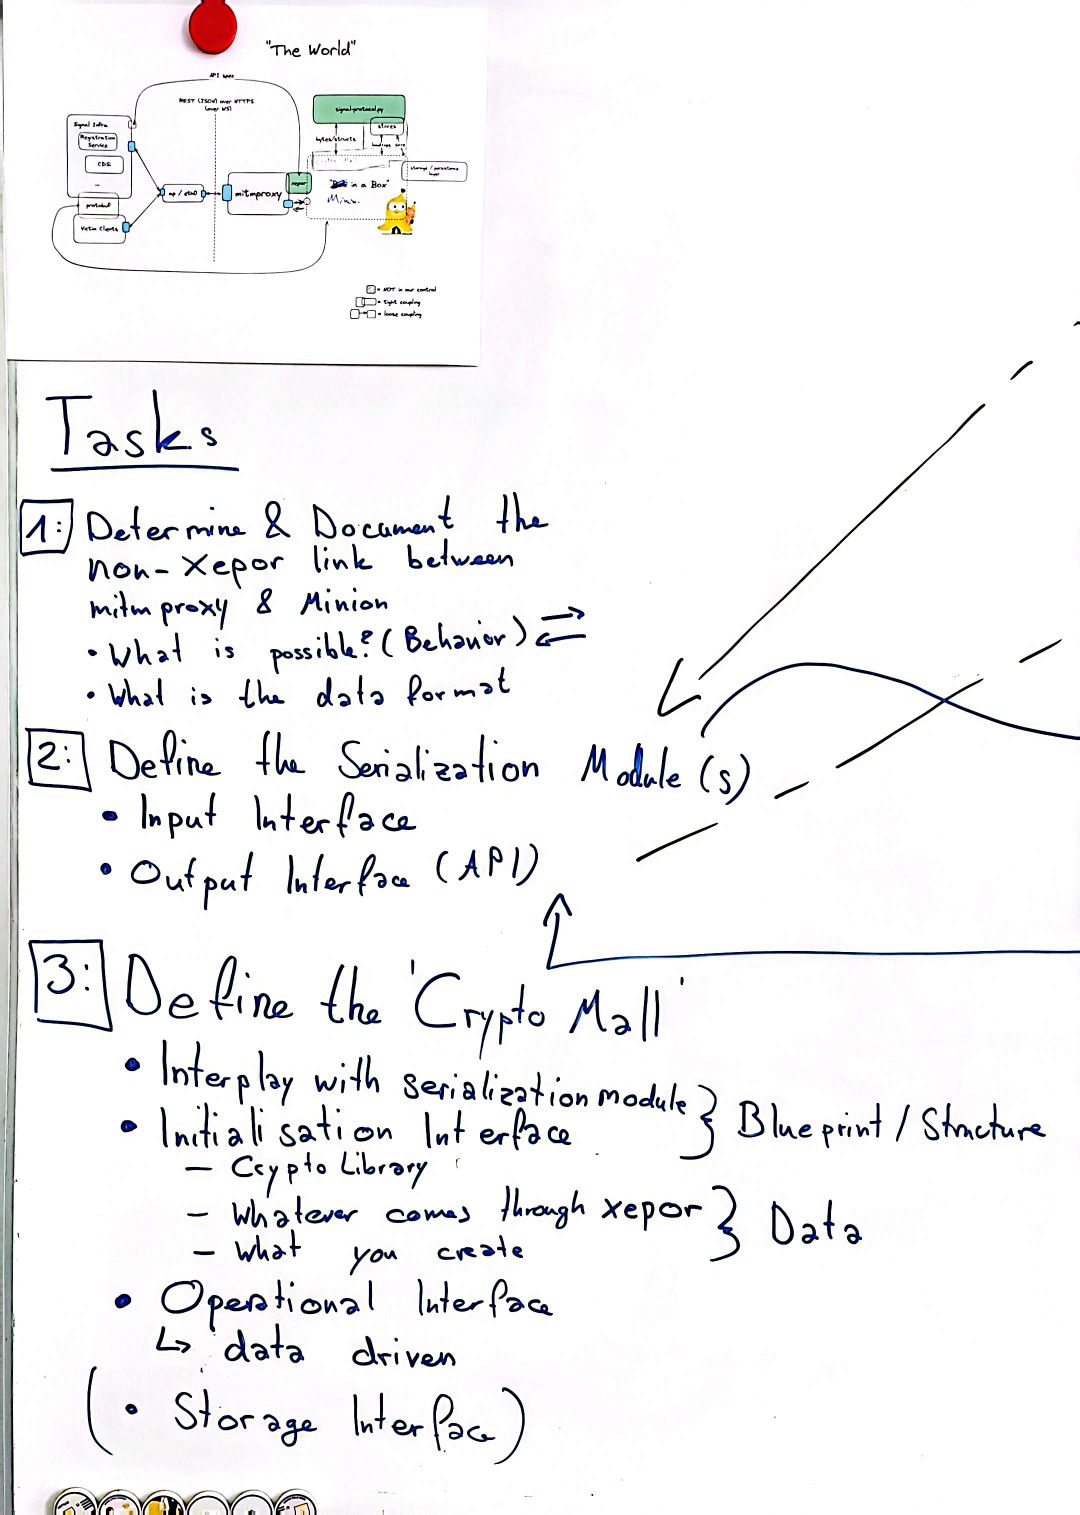 "The World"
API spec
REST (JSON) over HTTPS
(over WS)
signal-protocol.py
Signal Infra
stores
Registration
Service
bytes/structs
CDS
storage / persistence
layer
...
xepor
in a Box"
ap / eth0
mitmproxy
protobuf
Victim Clients
= NOT in our control
= tight coupling
= loose coupling
Tasks
1: Determine & Document the
non-Xepor link between
mitmproxy & Minion
• What is possible? (Behavior) ⇄
• What is the data format
2: Define the Serialization Module (s)
• Input Interface
• Output Interface (API)
3: Define the 'Crypto Mall'
• Interplay with serialization module
• Initialisation Interface } Blueprint / Structure
– Crypto Library
– Whatever comes through xepor } Data
– What you create
• Operational Interface
↳ data driven
(• Storage Interface)